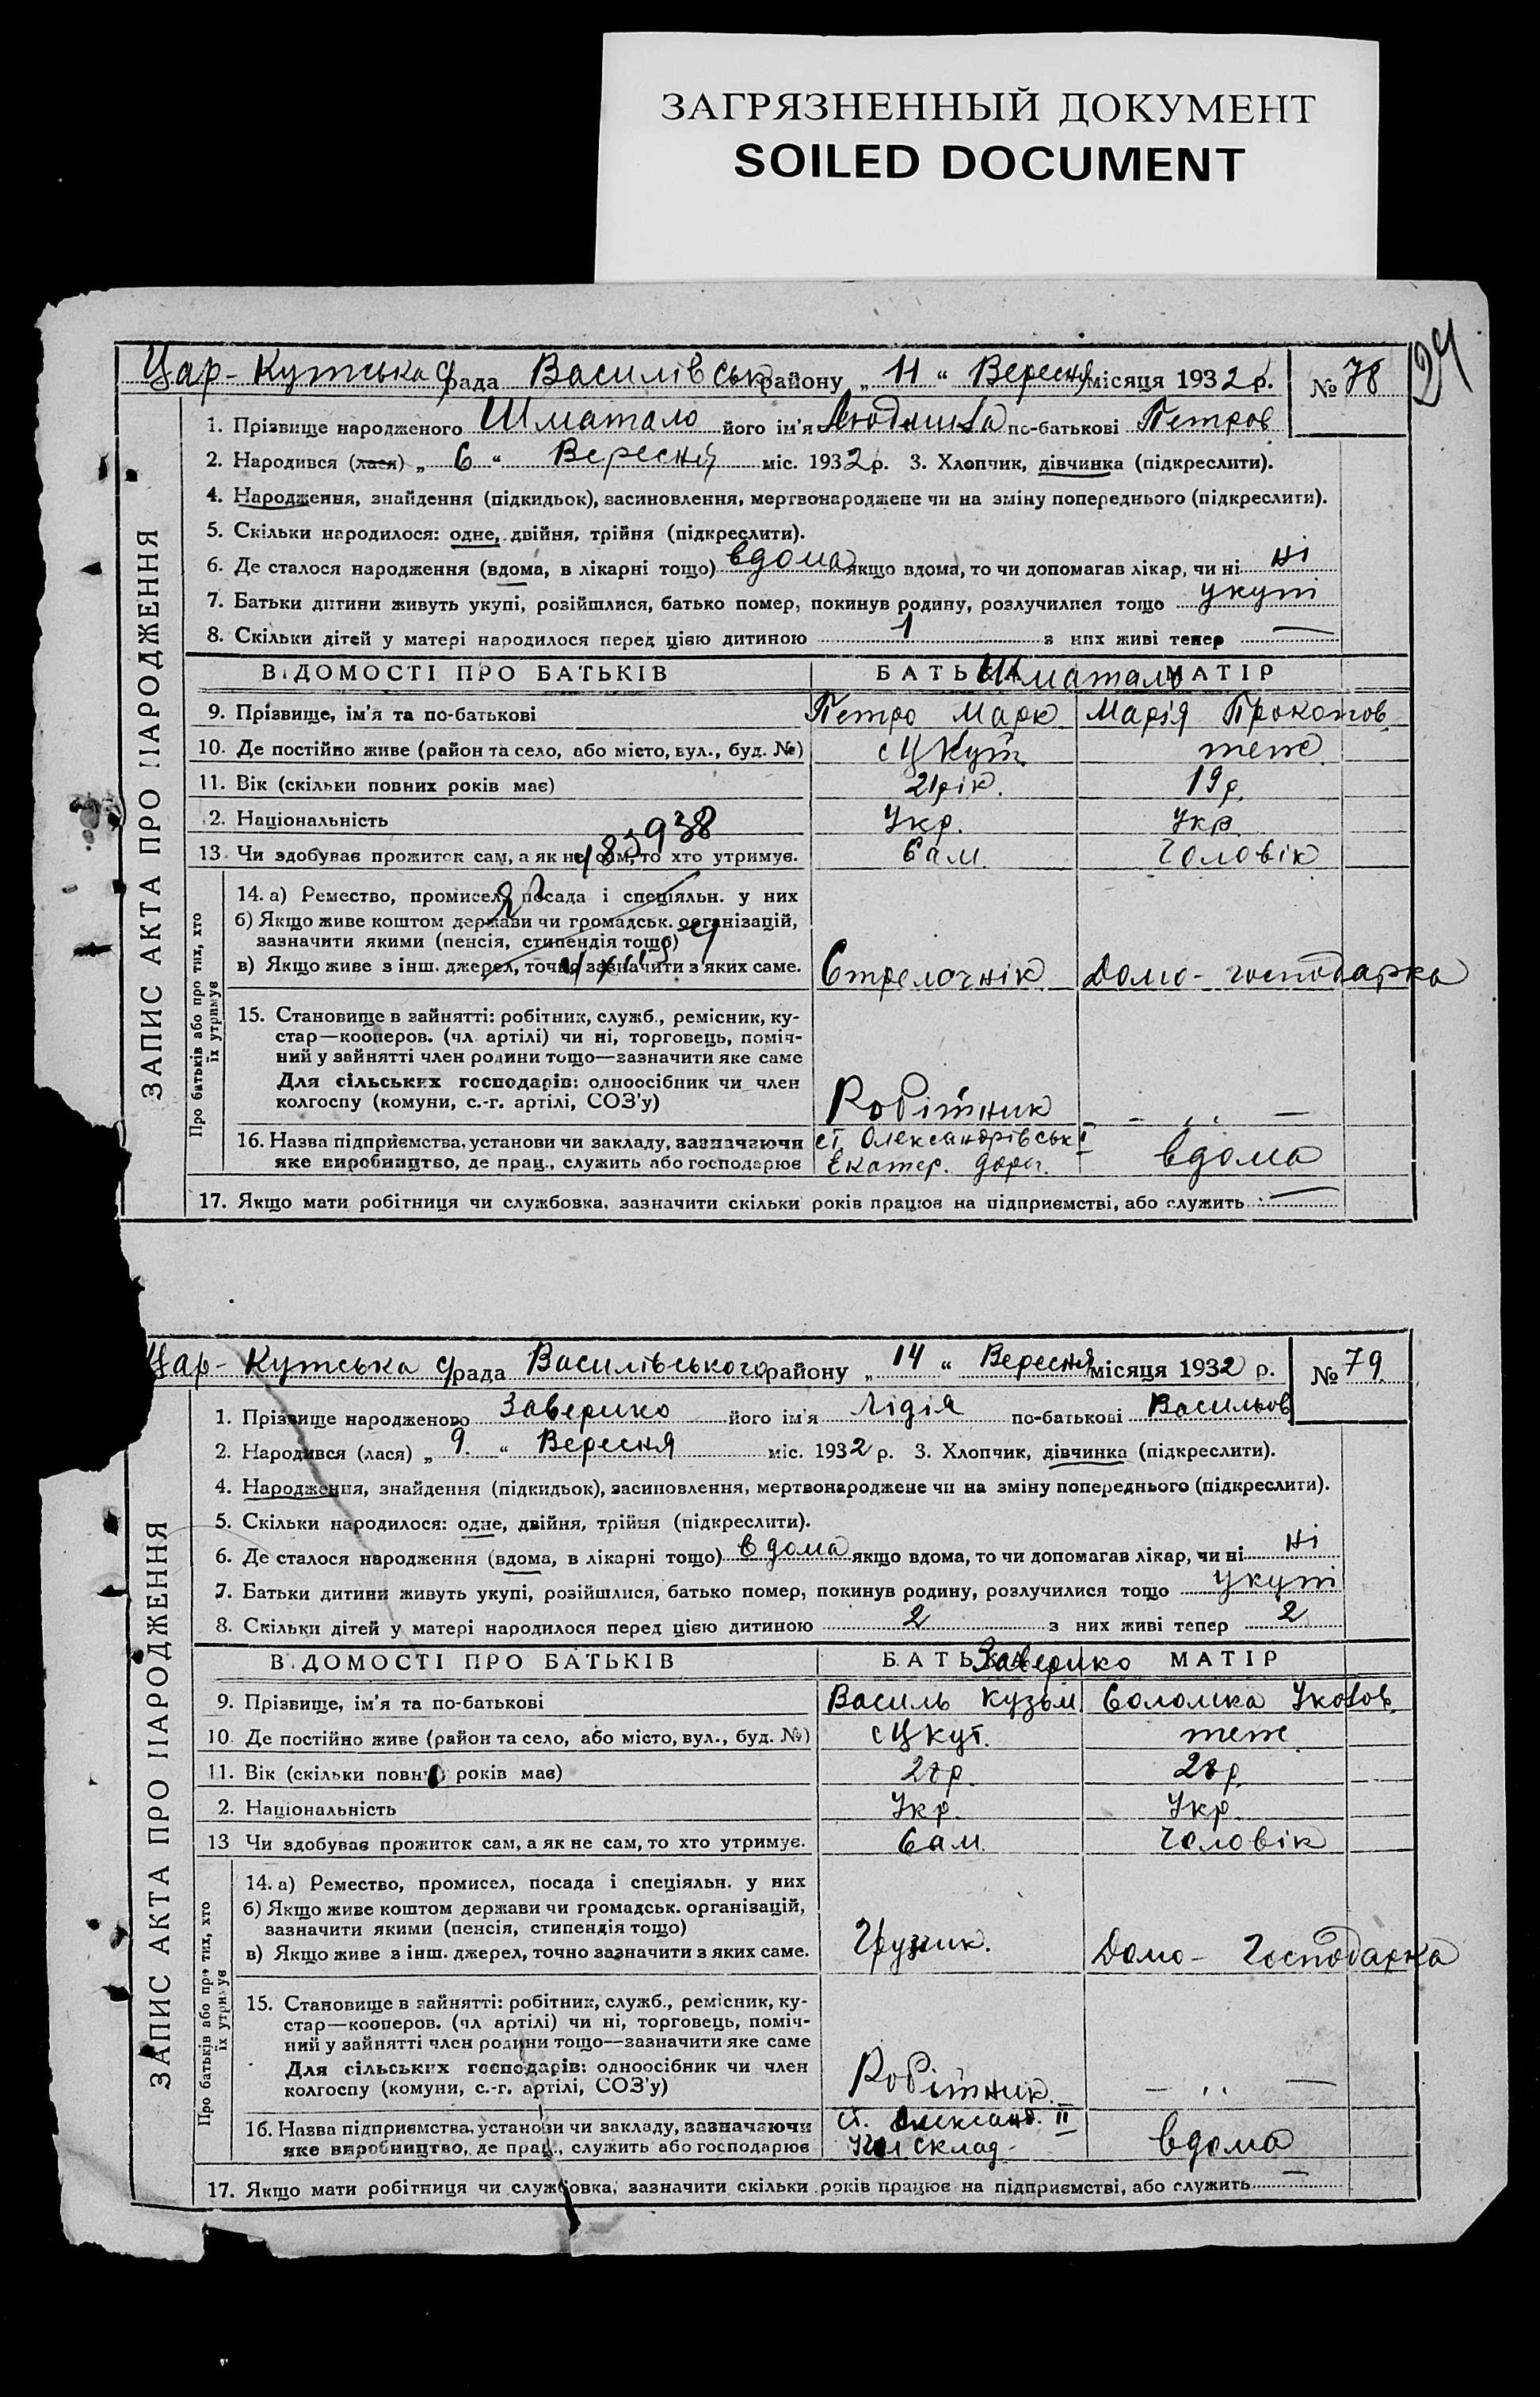 ЗАГРЯЗНЕННЫЙ ДОКУМЕНТ
SOILED DOCUMENT
24
Цар-Кутська с/рада Василівськ району „ 11 “ Вересня місяця 1932 р. № 78
ЗАПИС АКТА ПРО НАРОДЖЕННЯ
1. Прізвище народженого Шматало його ім'я Людмила по-батькові Петров
2. Народився (лася) „ 6 “ Вересня міс. 1932 р. 3. Хлопчик, дівчинка (підкреслити).
4. Народження, знайдення (підкидьок), засиновлення, мертвонароджене чи на зміну попереднього (підкреслити).
5. Скільки народилося: одне, двійня, трійня (підкреслити).
6. Де сталося народження (вдома, в лікарні тощо) вдома якщо вдома, то чи допомагав лікар, чи ні ні
7. Батьки дитини живуть укупі, розійшлися, батько помер, покинув родину, розлучилися тощо укупі
8. Скільки дітей у матері народилося перед цією дитиною 1 з них живі тепер —
ВІДОМОСТІ ПРО БАТЬКІВ БАТЬКА Шматало МАТІР
9. Прізвище, ім'я та по-батькові Петро Марк Марія Прокопов
10. Де постійно живе (район та село, або місто, вул., буд. №) с ЦКут теже
11. Вік (скільки повних років має) 21 рік. 19 р.
2. Національність Укр. Укр.
13. Чи здобуває прожиток сам, а як не сам, то хто утримує. Сам. Чоловік
Про батьків або про тих, хто їх утримує
14. а) Ремество, промисел, посада і спеціяльн. у них
б) Якщо живе коштом держави чи громадськ. організацій,
зазначити якими (пенсія, стипендія тощо)
в) Якщо живе з інш. джерел, точно зазначити з яких саме. Стрелочнік Домо-господарка
15. Становище в зайнятті: робітник, служб., ремісник, ку-
стар—кооперов. (чл. артілі) чи ні, торговець, поміч-
ний у зайнятті член родини тощо—зазначити яке саме
Для сільських господарів: одноосібник чи член
колгоспу (комуни, с.-г. артілі, СОЗ'у) Робітник — „ —
16. Назва підприємства, установи чи закладу, зазначаючи ст Олександрівськ І
яке виробництво, де прац., служить або господарює Екатер. дорог. вдома
17. Якщо мати робітниця чи службовка, зазначити скільки років працює на підприємстві, або служить —
Цар-Кутська с/рада Василівського району „ 14 “ Вересня місяця 1932 р. № 79
ЗАПИС АКТА ПРО НАРОДЖЕННЯ
1. Прізвище народженого Заверико його ім'я Лідія по-батькові Васильов
2. Народився (лася) „ 9. “ Вересня міс. 1932 р. 3. Хлопчик, дівчинка (підкреслити).
4. Народження, знайдення (підкидьок), засиновлення, мертвонароджене чи на зміну попереднього (підкреслити).
5. Скільки народилося: одне, двійня, трійня (підкреслити).
6. Де сталося народження (вдома, в лікарні тощо) вдома якщо вдома, то чи допомагав лікар, чи ні ні
7. Батьки дитини живуть укупі, розійшлися, батько помер, покинув родину, розлучилися тощо укупі
8. Скільки дітей у матері народилося перед цією дитиною 2 з них живі тепер 2
ВІДОМОСТІ ПРО БАТЬКІВ БАТЬКА Заверико МАТІР
9. Прізвище, ім'я та по-батькові Василь Кузьм Соломка Яковов
10. Де постійно живе (район та село, або місто, вул., буд. №) с Цкут. теже
11. Вік (скільки повних років має) 28 р. 28 р.
2. Національність Укр. Укр.
13 Чи здобуває прожиток сам, а як не сам, то хто утримує. Сам. Чоловік
Про батьків або про тих, хто їх утримує
14. а) Ремество, промисел, посада і спеціяльн. у них
б) Якщо живе коштом держави чи громадськ. організацій,
зазначити якими (пенсія, стипендія тощо)
в) Якщо живе з інш. джерел, точно зазначити з яких саме. Грузчик. Домо-Господарка
15. Становище в зайнятті: робітник, служб., ремісник, ку-
стар—кооперов. (чл артілі) чи ні, торговець, поміч-
ний у зайнятті член родини тощо—зазначити яке саме
Для сільських господарів: одноосібник чи член
колгоспу (комуни, с.-г. артілі, СОЗ'у) Робітник. — „ —
16. Назва підприємства, установи чи закладу, зазначаючи ст. Олександ. ІІ
яке виробництво, де прац., служить або господарює склад- вдома
17. Якщо мати робітниця чи службовка, зазначити скільки років працює на підприємстві, або служить —